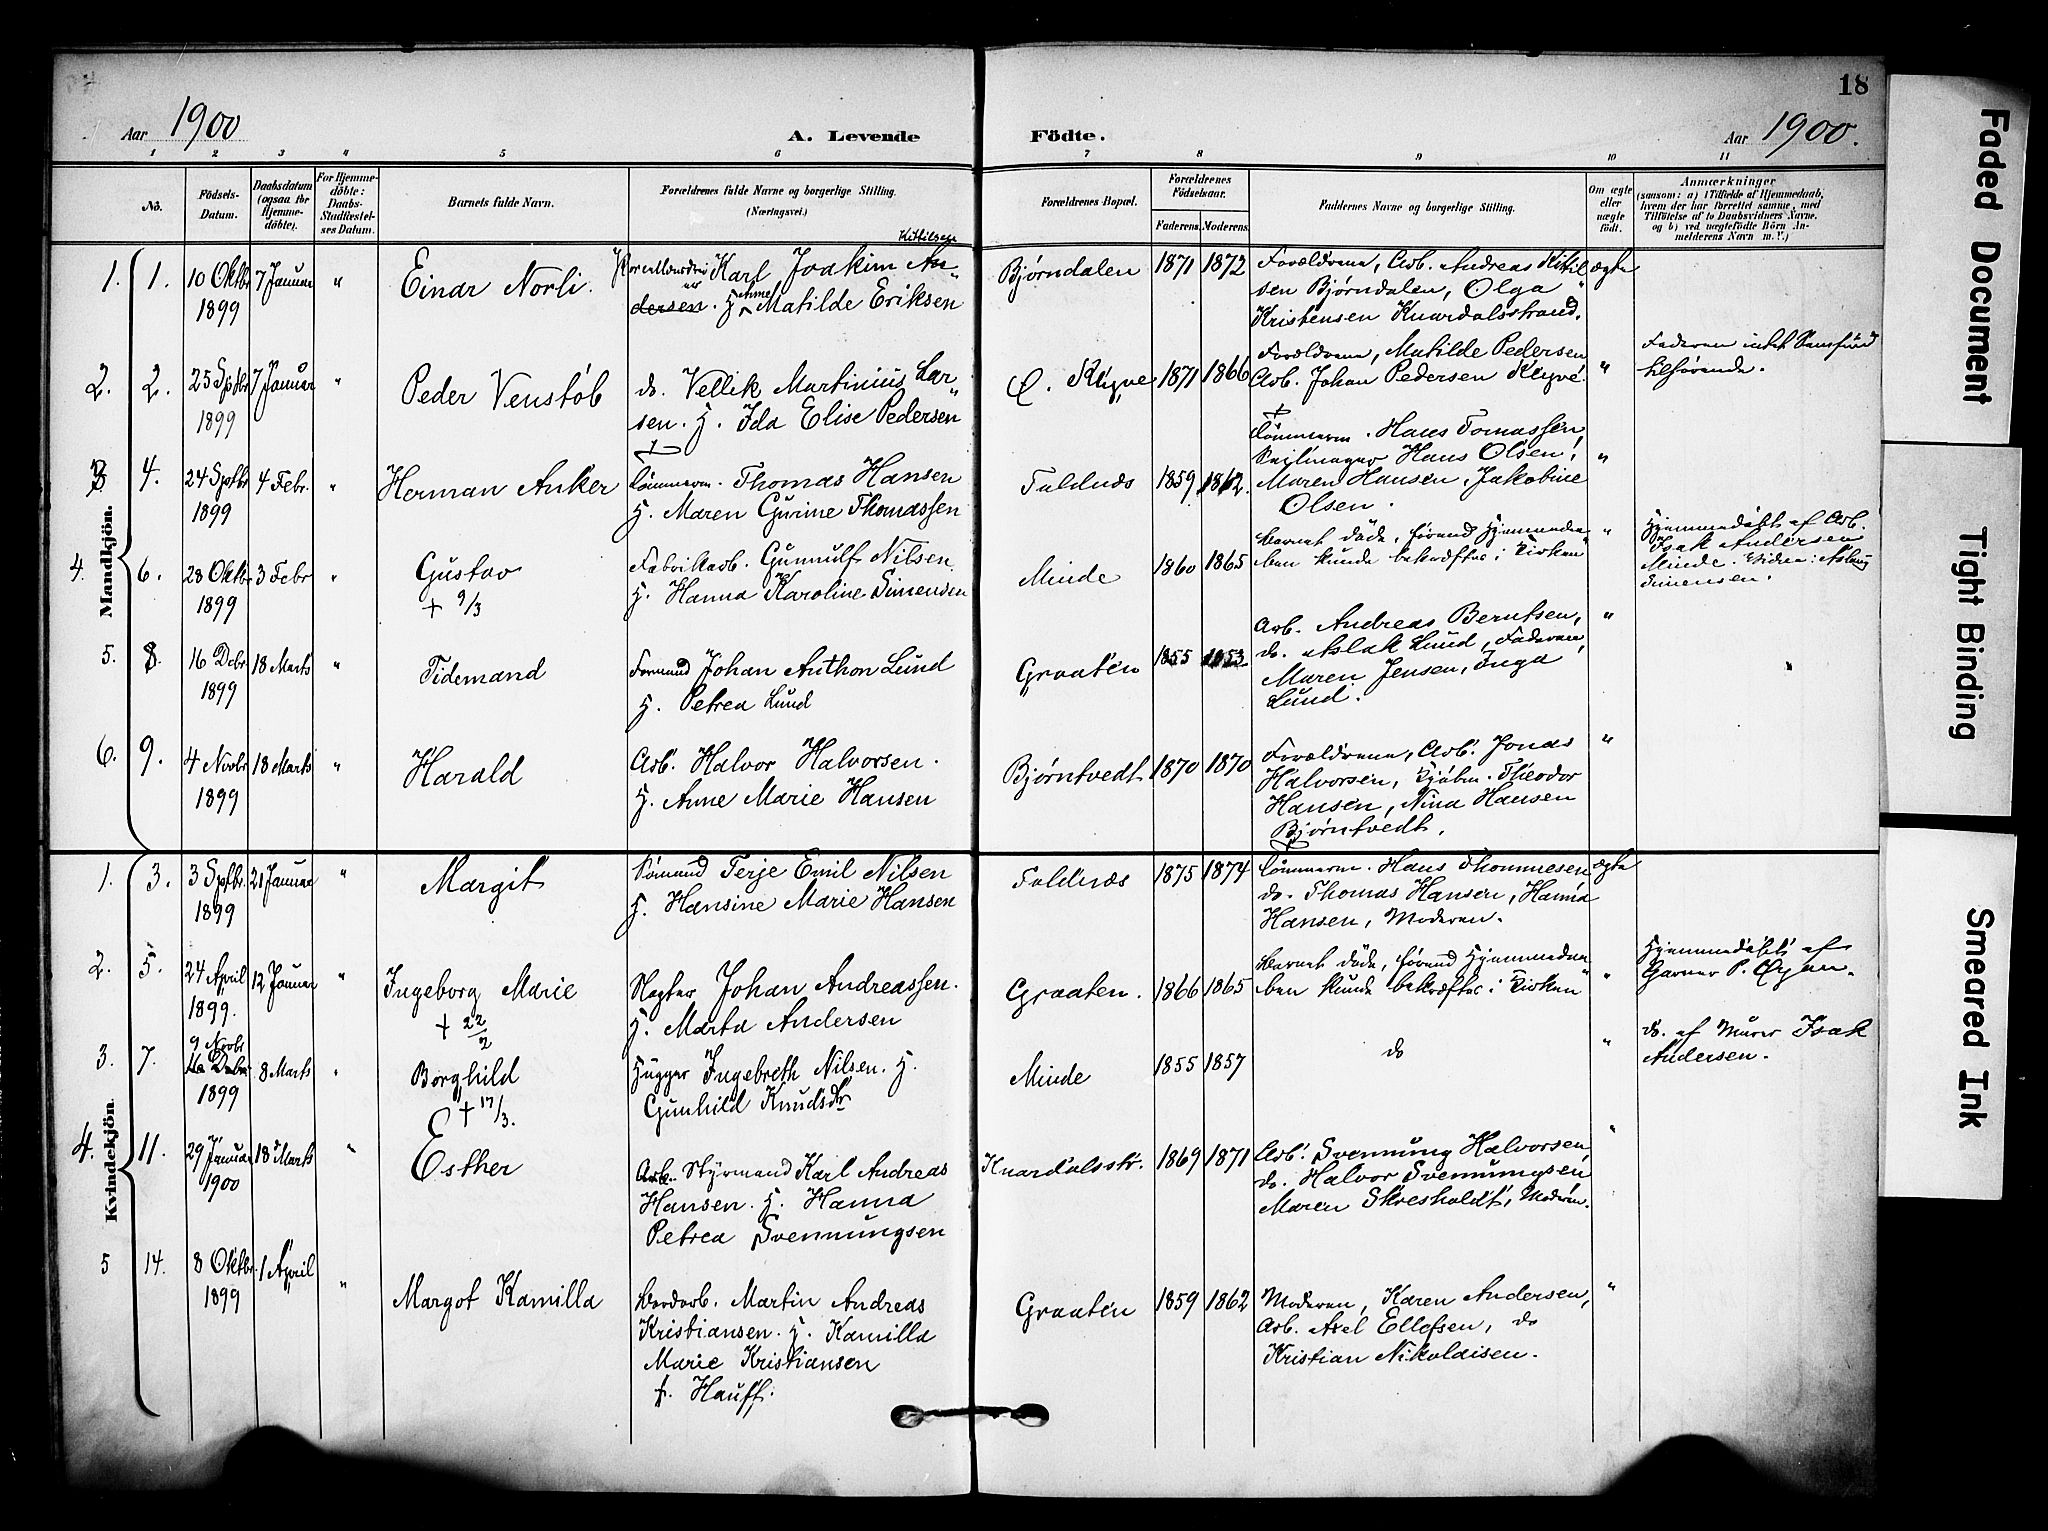 18
Aar 1900
A. Levende
Födte.
Aar 1900.
1 2 3 4 5 6 7 8 9 10 11
No.
Födsels-
Datum.
Daabsdatum
(ogsaa for
Hjemme-
döbte).
For Hjemme-
döbte:
Daabs-
Stadfæstel-
ses Datum.
Barnets fulde Navn.
Forældrenes fulde Navne og borgerlige Stilling.
(Næringsvei.)
Forældrenes Bopæl.
Forældrenes
Födselsaar.
Faderens. Moderens.
Faddernes Navne og borgerlige Stilling.
Om ægte
eller
uægte
födt.
Anmærkninger
(saasom: a) i Tilfælde af Hjemmedaab,
hvem der har forrettet samme, med
Tilföielse af to Daabsvidners Navne.
og b) ved uægtefödte Börn An-
melderens Navn m. V.)
Mandkjön.
1. 1. 10 Oktbr
1899
7 Januar
"
Einar Norli.
Kittilsen
Karl Joakim An-
dersen. H. Anne Matilde Eriksen
Bjørndalen
1871 1872
Forældrene, Arb. Andreas Kitil
sen Bjørndalen, Olga
Kristensen Knardalsstrand.
ægte
2. 2. 25 Sptbr
1899
7 Januar
"
Peder Venstöb
do. Vellik Martinius Lar-
sen. H. Ida Elise Pedersen
Ø. Klyve
1871 1866
Forældrene, Matilde Pedersen
Arb. Johan Pedersen Klyve.
"
Faderen intet Samfund
tilhørende.
3 4. 24 Sptbr
1899
4 Febr.
"
Herman Anker
Tömmerm. Thomas Hansen
H. Maren Gurine Thomassen
Faldnæs
1859 1862.
Tömmerm. Hans Tomassen,
Seilmager Hans Olsen,
Maren Hansen, Jakobine
Olsen.
"
4. 6. 28 Oktbr
1899
3 Febr
"
Gustav
+ 9/3
Fabrikarb. Gunnulf Nilsen
H. Hanna Karoline Simensen
Minde
1860 1865
Barnet døde, førend Hjemmedaa-
ben kunde bekræftes i Kirken
"
Hjemmedöbt af Arb.
Isak Andersen
Minde. Vidne: Aslaug
Simensen.
5. 8. 16 Dcbr
1899
18 Marts
"
Tidemand
Formand Johan Anthon Lund
H. Petrea Lund
Graaten
1855 1853
Arb. Andreas Berntsen,
do. Aslak Lund, Faderen,
Maren Jensen, Inga
Lund.
"
"
6. 9. 4 Novbr
1899
18 Marts
"
Harald
Arb. Halvor Halvorsen.
H. Anne Marie Hansen
Bjørntvedt
1870 1870
Forældrene, Arb. Jonas
Halvorsen, Kjøbm. Theodor
Hansen, Nina Hansen
Bjørntvedt.
"
Kvindekjön
1. 3. 3 Sptbr.
1899
21 Januar
"
Margit
Sömand Terje Emil Nilsen
H. Hansine Marie Hansen
Faldnæs
1875 1874
Tömmerm. Hans Thommesen
do. Thomas Hansen, Hanna
Hansen, Moderen.
ægte
2. 5. 24 April
1899.
12 Januar
"
Ingeborg Marie
+ 22/2
Slagter Johan Andreassen.
H. Marta Andersen
Graaten.
1866 1865
Barnet døde, førend Hjemmedaa-
ben kunde bekræftes i Kirken
"
Hjemmedöbt af
Garver P. Øyen.
3. 7. 9 Novbr
16 Dcbr
1899
8 Marts
"
Borghild
+ 17/3.
Hugger Ingebreth Nilsen. H.
Gunhild Knudsdr
Minde
1855 1857
do
"
do. af Murer Isak
Andersen.
4. 11. 29 Januar
1900
18 Marts
"
Esther
Arb. Styrmand Karl Andreas
Hansen. H. Hanna
Petrea Svennungsen
Knardalsstr.
1869 1871
Arb. Svennung Halvorsen,
do. Halvor Svennungsen,
Maren Skresholdt, Moderen.
"
5 14. 8 Oktbr.
1899
1 April
"
Margot Kamilla
Bordarb. Martin Andreas
Kristiansen. H. Kamilla
Marie Kristiansen
f. Hauff.
Graaten
1859 1862
Moderen, Karen Andersen,
Arb. Axel Ellefsen, do
Kristian Nikolaisen.
"
Faded Document
Tight Binding
Smeared Ink